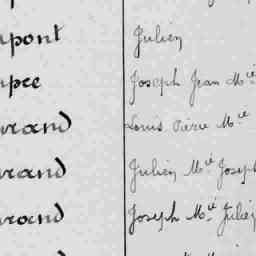 pont Julien
pee Joseph Jean M^ie
rand Louis Pierre M^ie
rand Julien M^ie Joseph
rand Joseph M^ie Julien